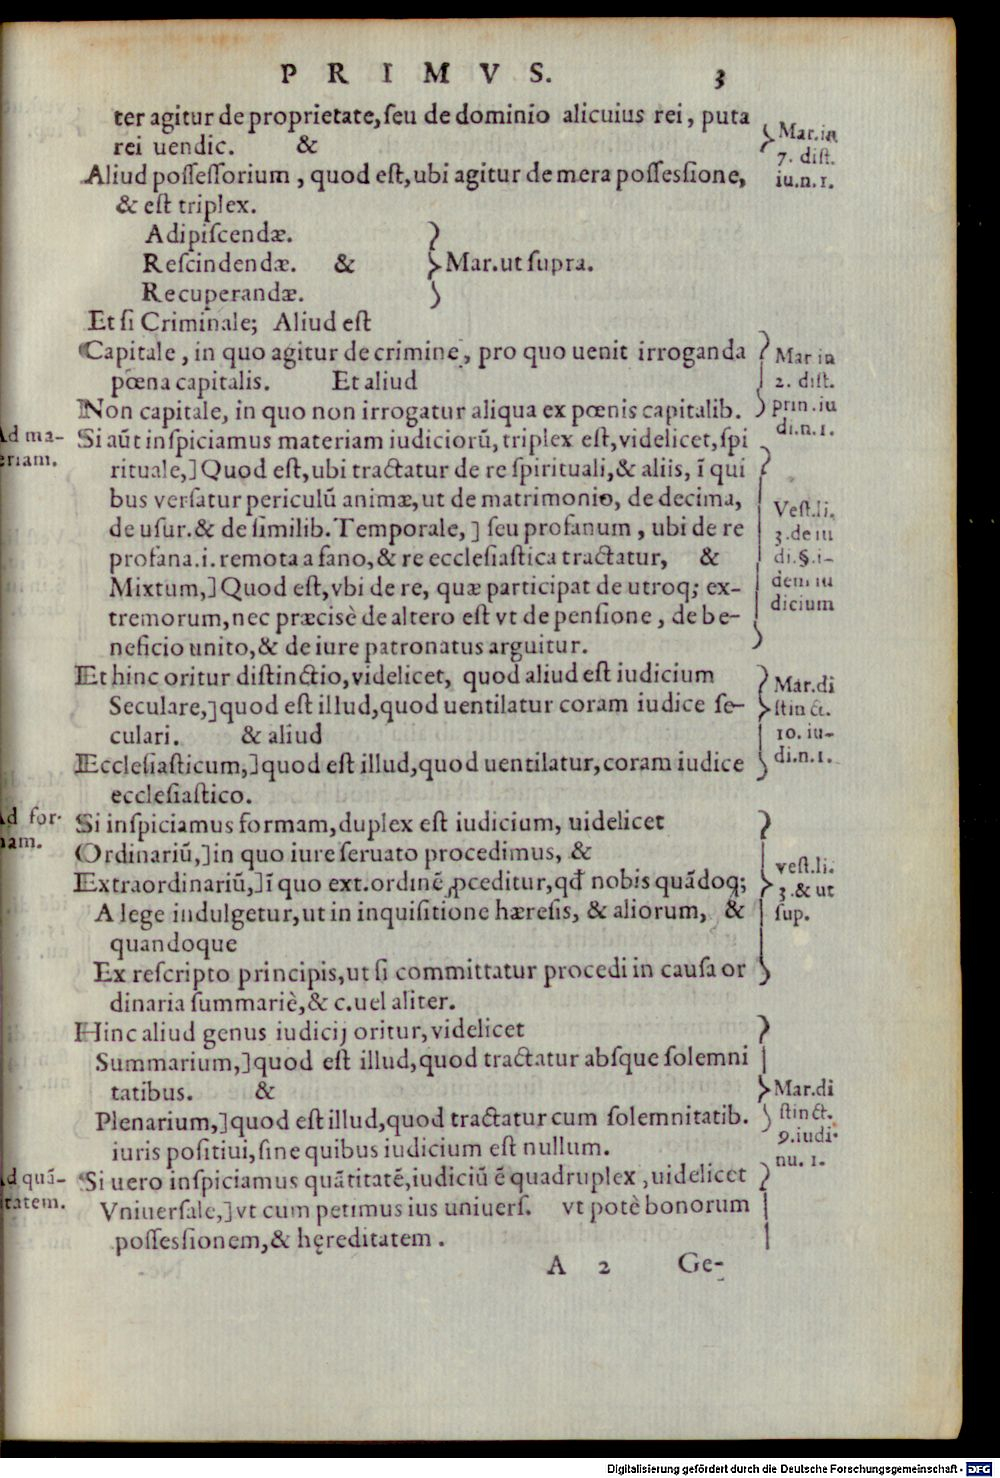 PRIMVS. 3
ter agitur de proprietate, ſeu de dominio alicuius rei, puta
rei uendic. &
Mar. in
7. diſt.
iu.n.1.
Aliud poſſeſſorium, quod eſt, ubi agitur de mera poſſeſsione,
& eſt triplex.
Adipiſcendæ.
Reſcindendæ. & Mar. ut ſupra.
Recuperandæ.
Et ſi Criminale; Aliud eſt
Capitale, in quo agitur de crimine, pro quo uenit irroganda
pœna capitalis. Et aliud
Non capitale, in quo non irrogatur aliqua ex pœnis capitalib.
Mar in
2. diſt.
prin.iu
di.n.1.
Ad ma-
eriam.
Si aūt inſpiciamus materiam iudiciorū, triplex eſt, videlicet, ſpi
rituale,] Quod eſt, ubi tractatur de re ſpirituali, & aliis, ī qui
bus verſatur periculū animæ, ut de matrimonio, de decima,
de uſur. & de ſimilib. Temporale,] ſeu profanum, ubi de re
profana.i. remota a fano, & re eccleſiaſtica tractatur, &
Mixtum,] Quod eſt, vbi de re, quæ participat de utroq; ex-
tremorum, nec præcisè de altero eſt vt de penſione, de be-
neficio unito, & de iure patronatus arguitur.
Veſt.li.
3.de iu
di.§.i-
dem iu
dicium
Et hinc oritur diſtinctio, videlicet, quod aliud eſt iudicium
Seculare,] quod eſt illud, quod uentilatur coram iudice ſe-
culari. & aliud
Eccleſiaſticum,] quod eſt illud, quod uentilatur, coram iudice
eccleſiaſtico.
Mar.di
ſtinct.
10. iu-
di.n.1.
Ad for-
mam.
Si inſpiciamus formam, duplex eſt iudicium, uidelicet
Ordinariū,] in quo iure ſeruato procedimus, &
Extraordinariū,] ī quo ext.ordinē ꝓceditur, qđ nobis quādoq;
A lege indulgetur, ut in inquiſitione hæreſis, & aliorum, &
quandoque
Ex reſcripto principis, ut ſi committatur procedi in cauſa or
dinaria ſummariè, & c. uel aliter.
veſt.li.
3.& ut
ſup.
Hinc aliud genus iudicij oritur, videlicet
Summarium,] quod eſt illud, quod tractatur abſque ſolemni
tatibus. &
Plenarium,] quod eſt illud, quod tractatur cum ſolemnitatib.
iuris poſitiui, ſine quibus iudicium eſt nullum.
Mar.di
ſtinct.
9.iudi-
nu. 1.
Ad quā-
titatem.
Si uero inſpiciamus quātitatē, iudiciū ē quadruplex, uidelicet
Vniuerſale,] vt cum petimus ius uniuerſ. vt potè bonorum
poſſeſsionem, & hęreditatem.
A 2 Ge-
Digitalisierung gefördert durch die Deutsche Forschungsgemeinschaft - DFG